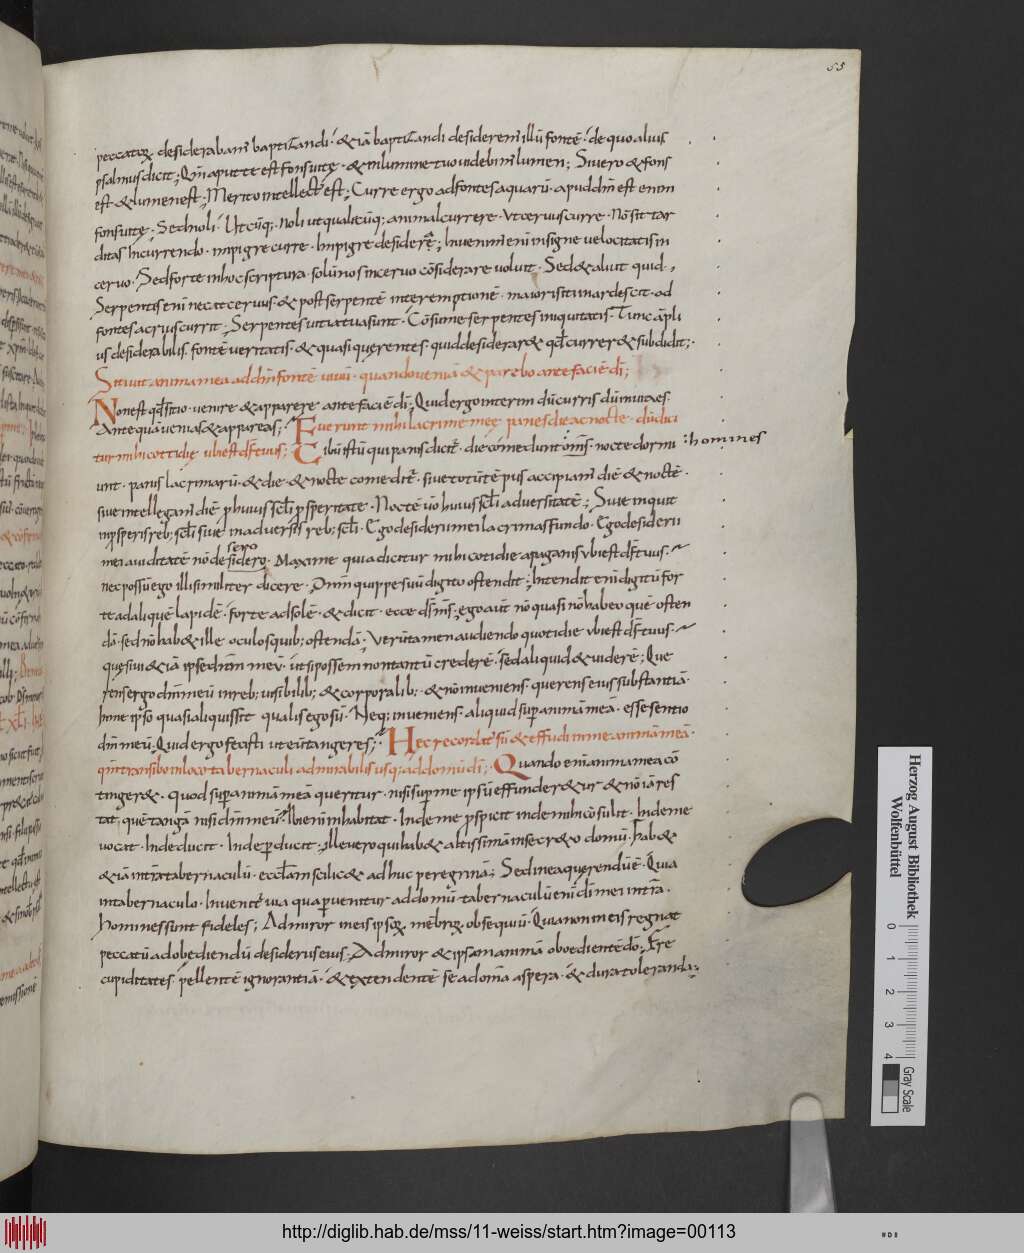 55
peccatorꝝ desiderabant baptizandi · & iā baptizandi desiderent illū fontē · de quo alius
psalmus dicit; Qm̄ aput te est fons uitę · & in lumine tuo uidebim̄ lumen; Si uero & fons
est · & lumen est; Merito intellect' est; Curre ergo ad fontes aquarū · apud dm̄ est enim
fons uitę; Sed noli · Utcūq; · noli ut qualecūq; animal currere · Ut ceruus curre · Nō sit tar
ditas in currendo · impigre curre · Impigre desiderā; Inuenim̄ enī insigne uelocitatis in
ceruo · Sed forte in hoc scriptura · solū nos in ceruo cōsiderare uoluit · Sed & aliut quid ·
Serpentes enī necat ceruus · & post serpentē interemptionē · maiori siti inardescit · ad
fontes acrius currit; Serpentes uitia tua sunt · Cōsume serpentes iniquitatis · Tunc āpli
us desiderabilis fontē ueritatis · & quasi querentes · quid desiderar& qd̄ currer& subdidit;
Sitiuit anima mea ad dm̄ fontē uiuū · quando ueniā & parebo ante faciē dī;
Non est qd̄ sitio · uenire & apparere ante faciē dī; Quid ergo interim dū curris dū inuitaes
Antequā uenias & appareas; Fuerunt mihi lacrime meę panes die ac nocte · dū dici
tur mihi cottidię ubi est ds̄ tuus; Cibū istū qui panis dicit' · die comedunt om̄s · nocte dormi : homines
unt · panis lacrimarū · & die · & nocte comedit' · siue totū tēpus accipiam̄ diē & noctē ·
siue intellegam̄ diē p huius scl̄i psperitate · Noctē uō huius scl̄i aduersitatē; Siue inquit
in psperis reb; scl̄i siue in aduersis reb; scl̄i · Ego desiderii mei lacrimas fundo · Ego desiderii
sero
mei auiditatē nō desidero · Maxime quia dicitur mihi cotidie a paganis ubi est ds̄ tuus ·
nec possū ego illi similiter dicere · Om̄is quippe suū digito ostendit; Intendit enī digitū for
te ad aliquē lapidē · forte ad solē · & dicit · ecce ds̄ m̄s; ego aūt nō quasi nō habeo quē osten
dā · sed nō hab& ille oculos quib; ostendā; Uerūtamen audiendo quotidie ubi est ds̄ tuus ·
quęsiui & iā ipse dnm̄ meū · ut si possem non tantū crederē · sed aliquid & uiderē; Que
rens ergo dm̄ meū in reb; uisibilib; & corporalib; · & nō inueniens · querens eius substantiā
hinc ipso quasi aliquis sit qualis ego sū · Neq; inueniens · aliquid sup animā meā · esse sentio
dm̄ meū; Quid ergo fecisti ut eū tangeres; Hec recordat' sū & effudi in me animā meā ·
qm̄ transibo in loco tabernaculi admirabilis usq; ad domū dī; Quando enī anima mea cō
tinger& · quod sup animā meā queritur · nisi sup me ipsū effunder&ur & nō iā res
tat; quē tanga nisi dm̄ meū? Ibi enī inhabitat · Inde me pspicit inde mihi cōsulit · Inde me
uocat · Inde ducit · Inde pducit; Ille uero qui hab& altissimā in secr&o domū · hab&
& iā in trā tabernaculū · eccl̄am scilic& adhuc peregrinā; Sed in ea querendū ē · Quia
in tabernaculo · Inuenit' uia qua puenitur ad domū · tabernaculū enī dī mei in trā ·
homines sunt fideles; Admiror in eis ipsoꝝ mēbroꝝ obsequiū · Quia non in eis regnat
peccatū ad obediendū desideriis eius; Admiror & ipsam animā oboedientē dō; Fre
cupiditates pellentē ignorantiā · & extendentē se ad om̄a aspera · & dura toleranda;
Herzog August Bibliothek
Wolfenbüttel
0 1 2 3 4
Gray Scale
http://diglib.hab.de/mss/11-weiss/start.htm?image=00113